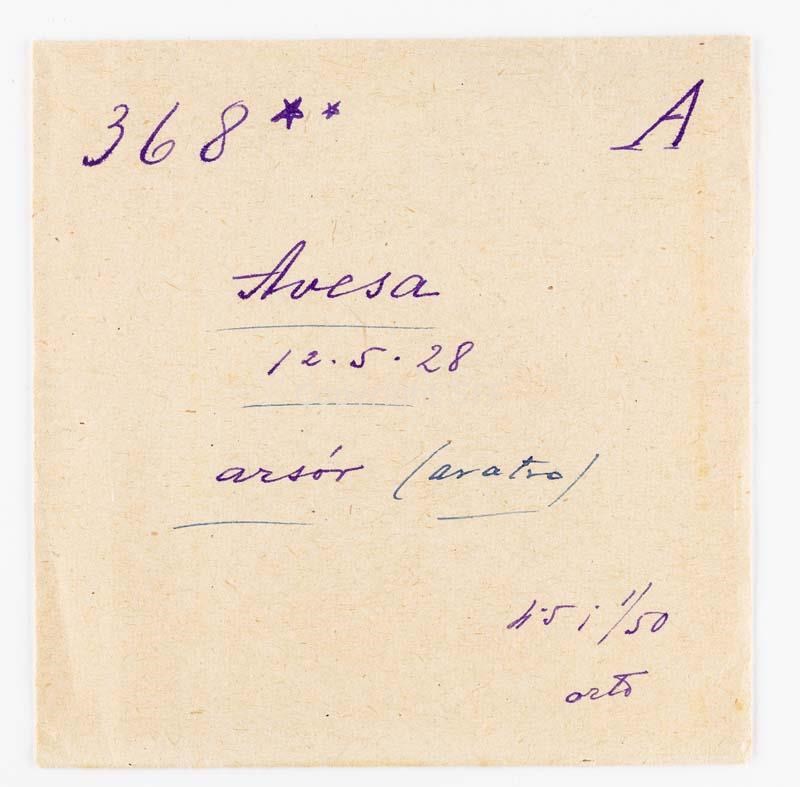 368** A
Avesa
12.5.28
arsór (aratro)
4.5 ; 1/50
orto